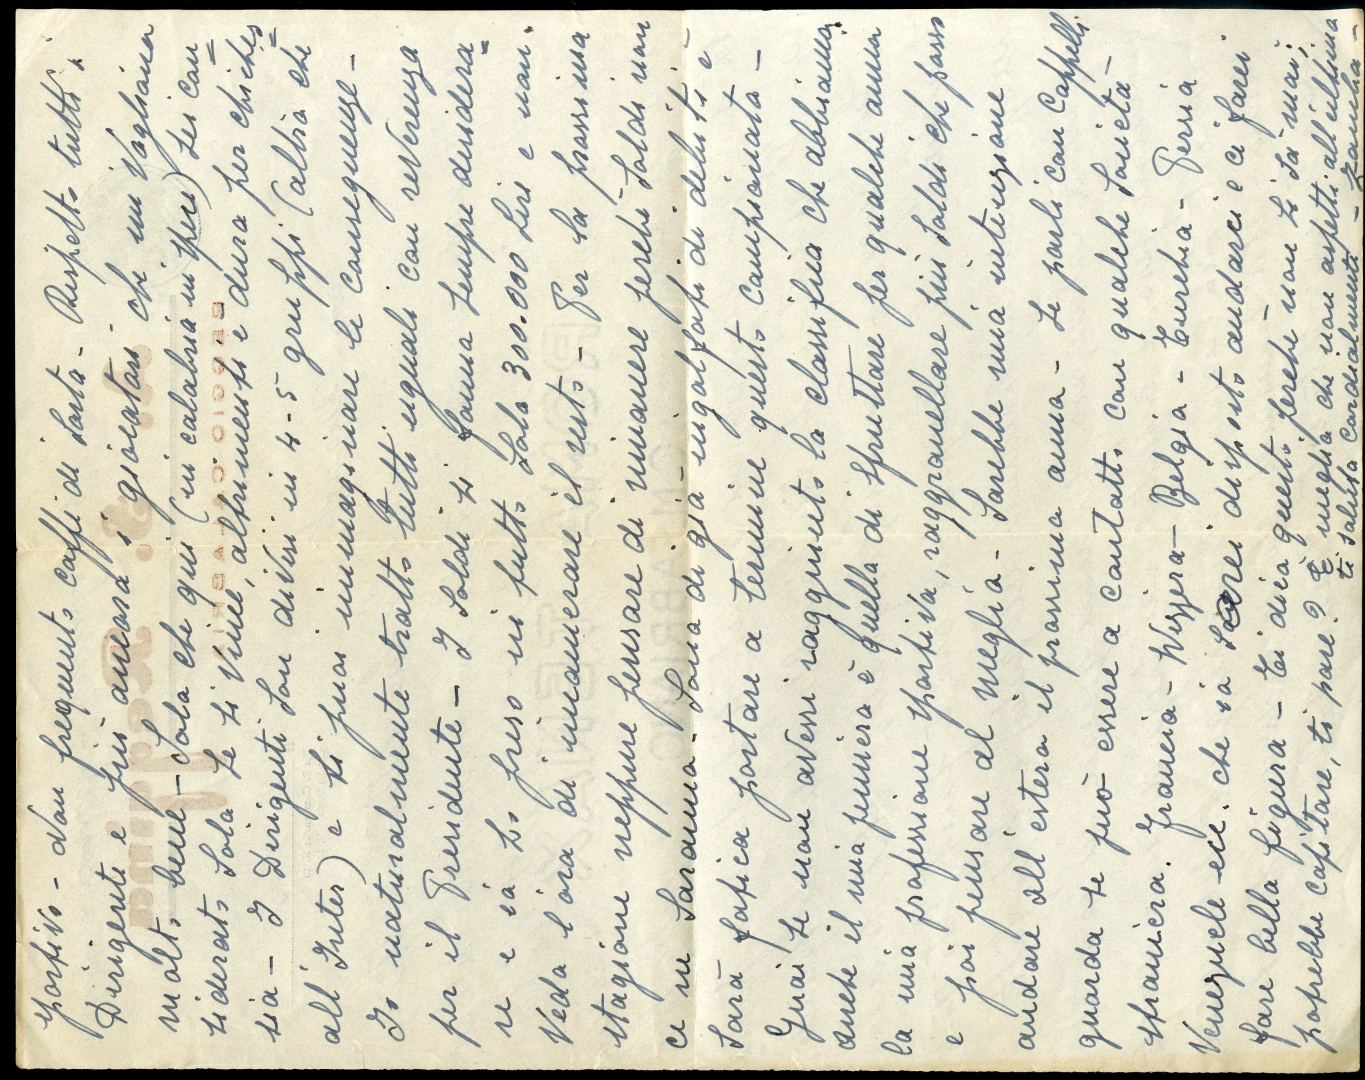 sportivo - Non frequento caffi di sorta - Rispetto tutti i
Dirigenti e più ancora i giocatori - che mi vogliono
molto bene - Solo che qui (in calabria in spece) sei con=
siderato solo se si vince, altrimenti è dura per chicches=
sia - I Dirigenti son divisi in 4-5 gruppi (altro che
all'Inter) e ti puoi immaginare le conseguenze -
Io naturalmente tratto tutti uguali con reverenza
per il Presidente - I soldi si fanno sempre desidera=
re e io ho preso in tutto solo 300.000 lire e non
vedo l'ora di incamerare il resto - Per la prossima
stagione neppure pensare di rimanere perchè soldi non
ce ne saranno - Sono di già ingolfati di debiti e
sarà fatica portare a termine questo campionato -
Guai se non avessi raggiunto la classifica che abbiamo,
anche il mio pensiero è quello di sfruttare per qualche anno
la mia professione sportiva, raggranellare più soldi che posso
e poi pensare al meglio. Sarebbe mia intenzione
andare all'estero il prossimo anno - Se parli con Cappelli
guarda se può essere a contatto con qualche società
straniera. Francia - Svizzera - Belgio - Turchia - Persia
Venezuele ecc. che io sarei disposto andarci e ci farei
fare bella figura - Ti dico questo perchè non si sa mai;
potrebbe capitare, ti pare? È meglio che non aspetti all'ultimo
ti saluto cordialmente -